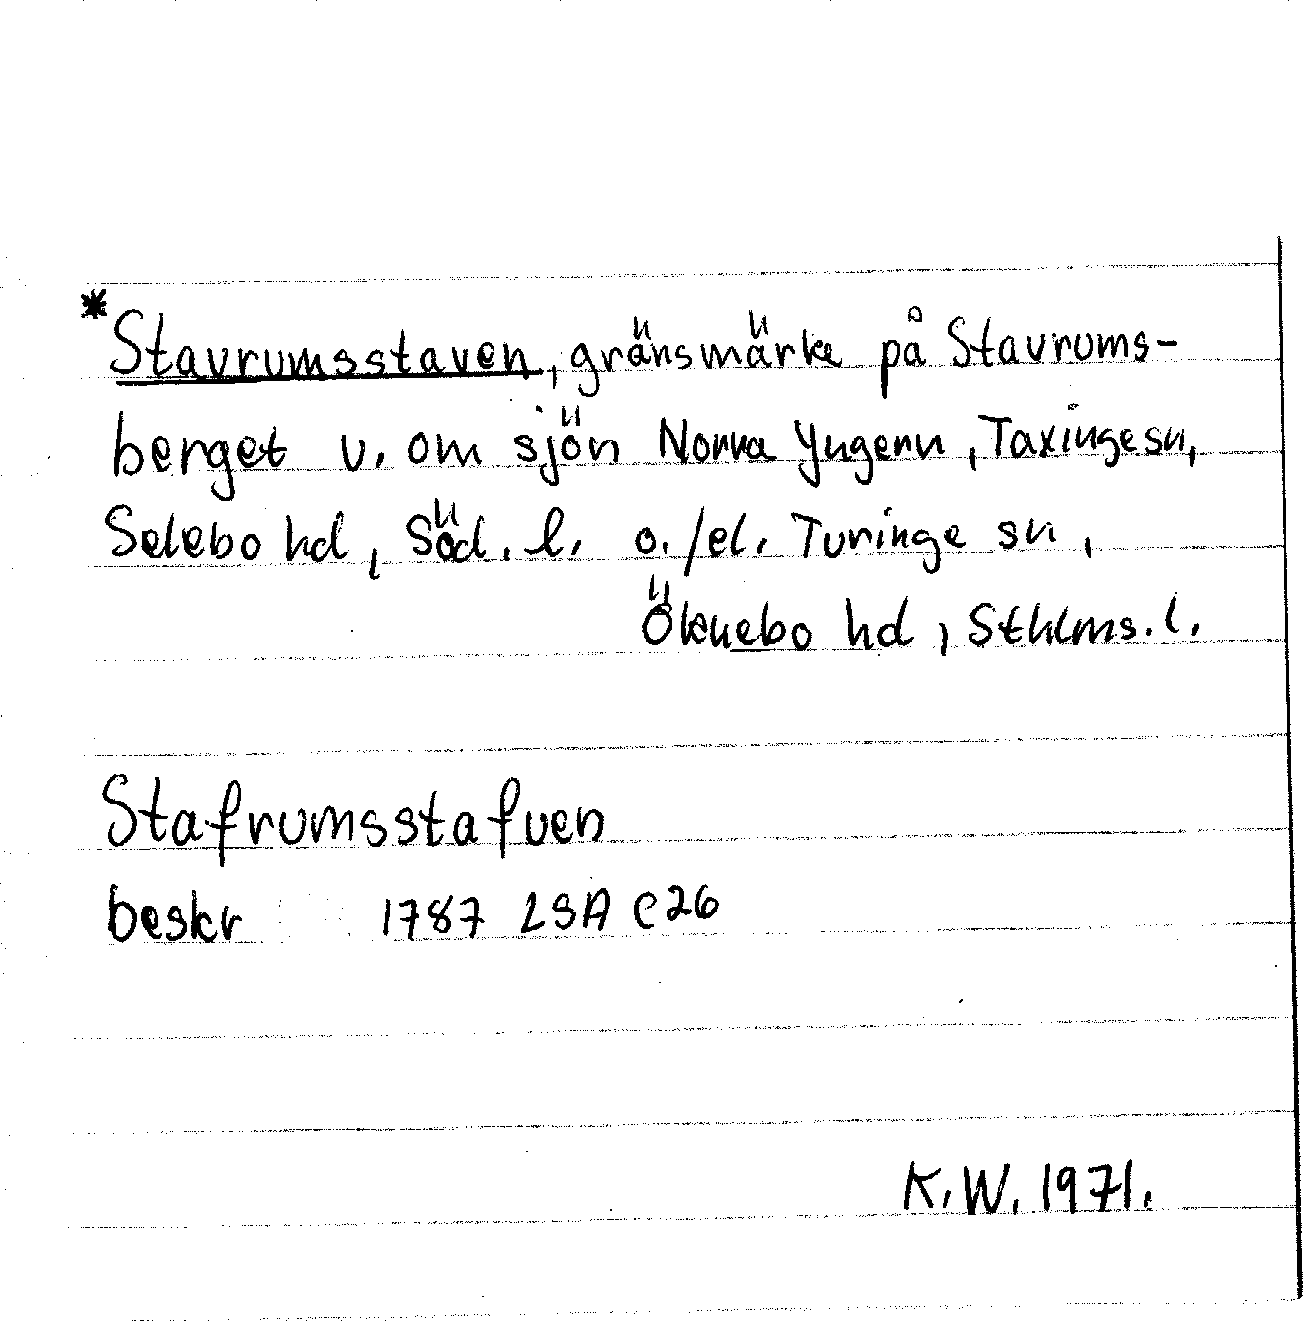 *Stavrumsstaven, gränsmärke på Stavrums-
berget v. om sjön Norra Yngern, Taxinge sn,
Selebo hd, Söd. l. o./el. Turinge sn,
Öknebo hd, Sthlms. l.
Stafrumsstafven
beskr 1787 LSA C26
K.W. 1971.